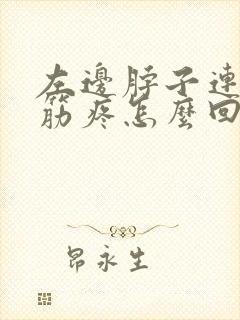 左邊脖子連
筋疼怎麼回
昂永生